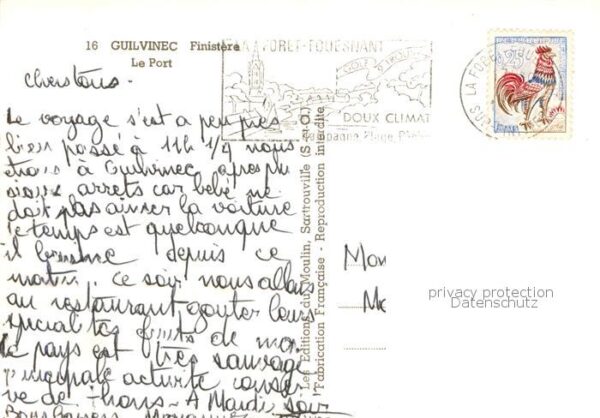 16 GUILVINEC Finistère
Le Port
LA FORET-FOUESNANT
DOUX CLIMAT
Campagne Plage
25
chers tous -
Le voyage s'est a peu près
bien passé à 11h 1/4 nous
étions à Guilvinec après plu
sieurs arrets car bébé ne
doit pas aimer la voiture
le temps est quelconque
il bruine depuis ce
matin, ce soir nous allons
au restaurant gouter leurs
spécialités fruits de mer
le pays est très sauvage
principale activité conser
ve de thons - A Mardi soir
Bons baisers
Les Editions du Moulin, Sartrouville (S.-&-O.)
Fabrication Française - Reproduction interdite
privacy protection
Datenschutz